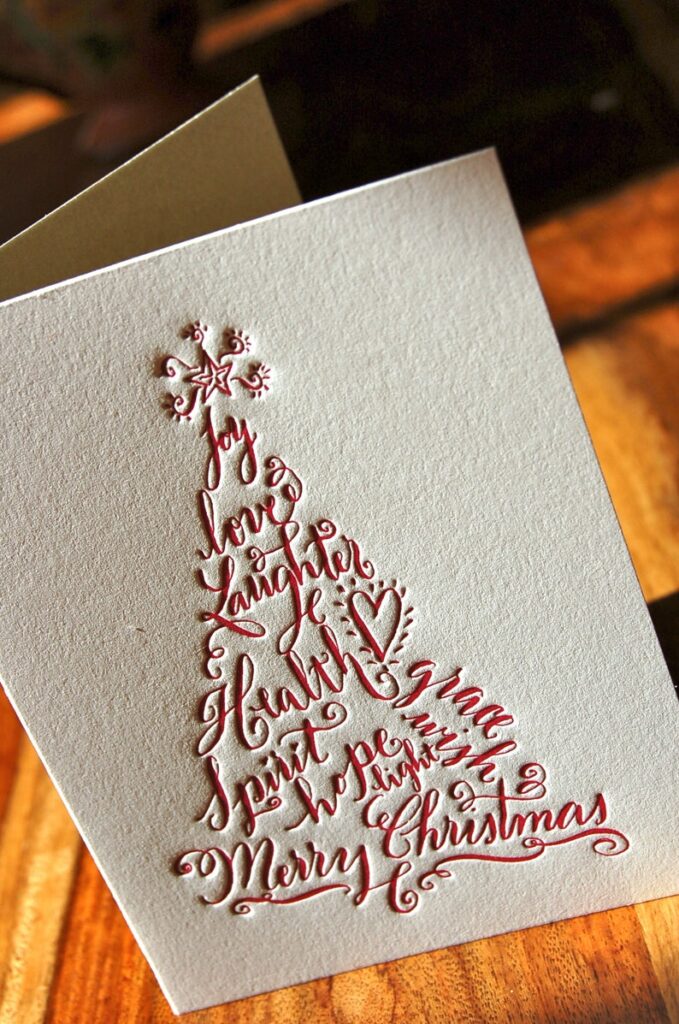 Joy
love
Laughter
Health
grace
Spirit hope wish
light
Merry Christmas